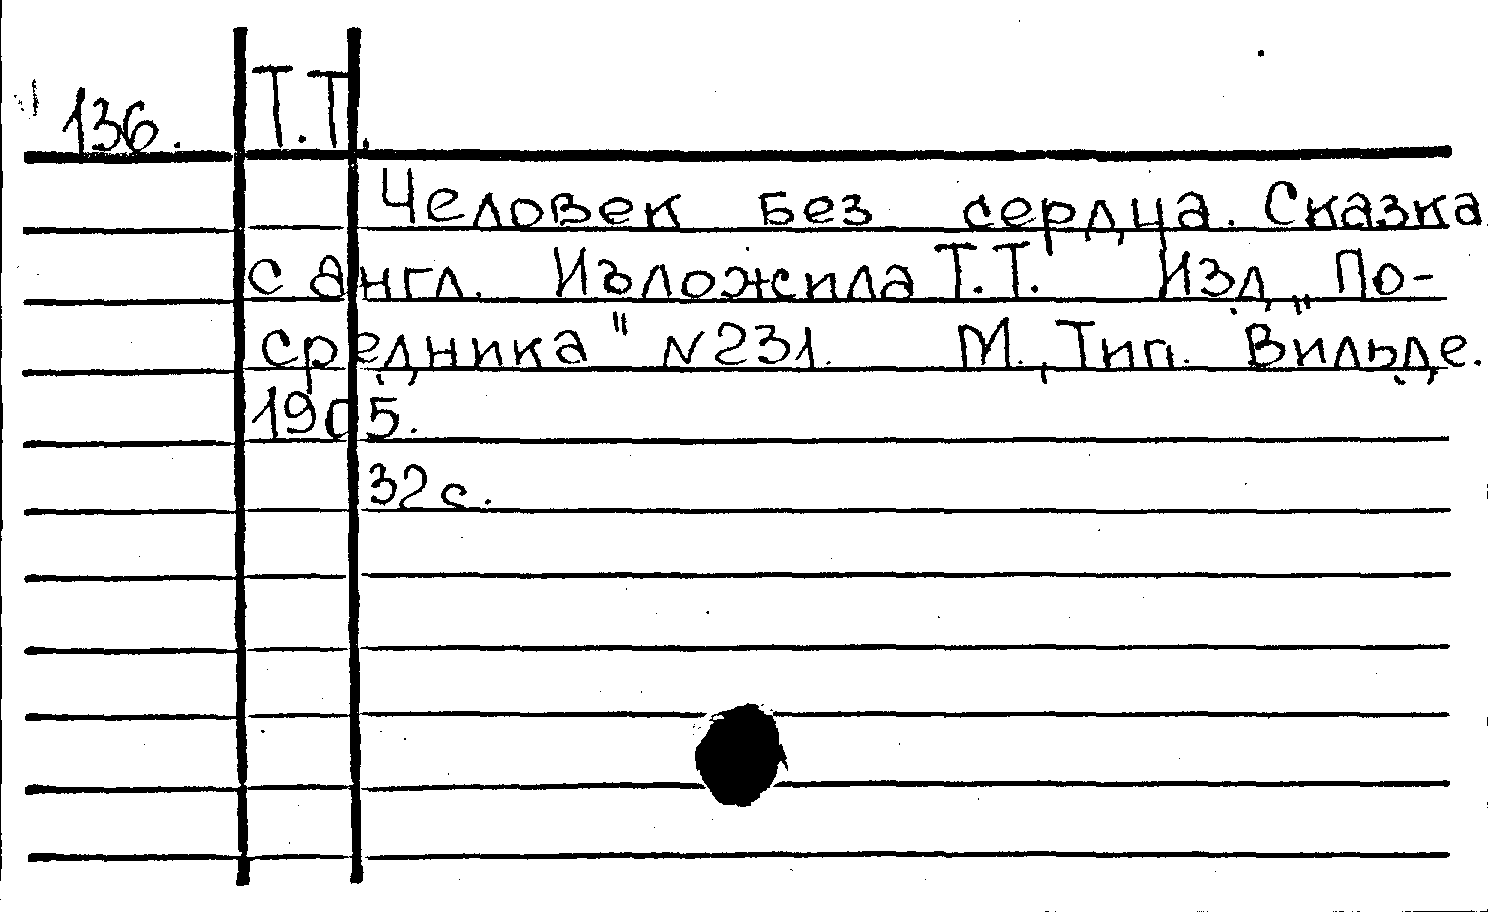 136. Т.Т.
Человек без сердца. Сказка
с англ. Изложила Т.Т. Изд. „По-
средника" N231. М., Тип. Вильде.
1905.
32 с.